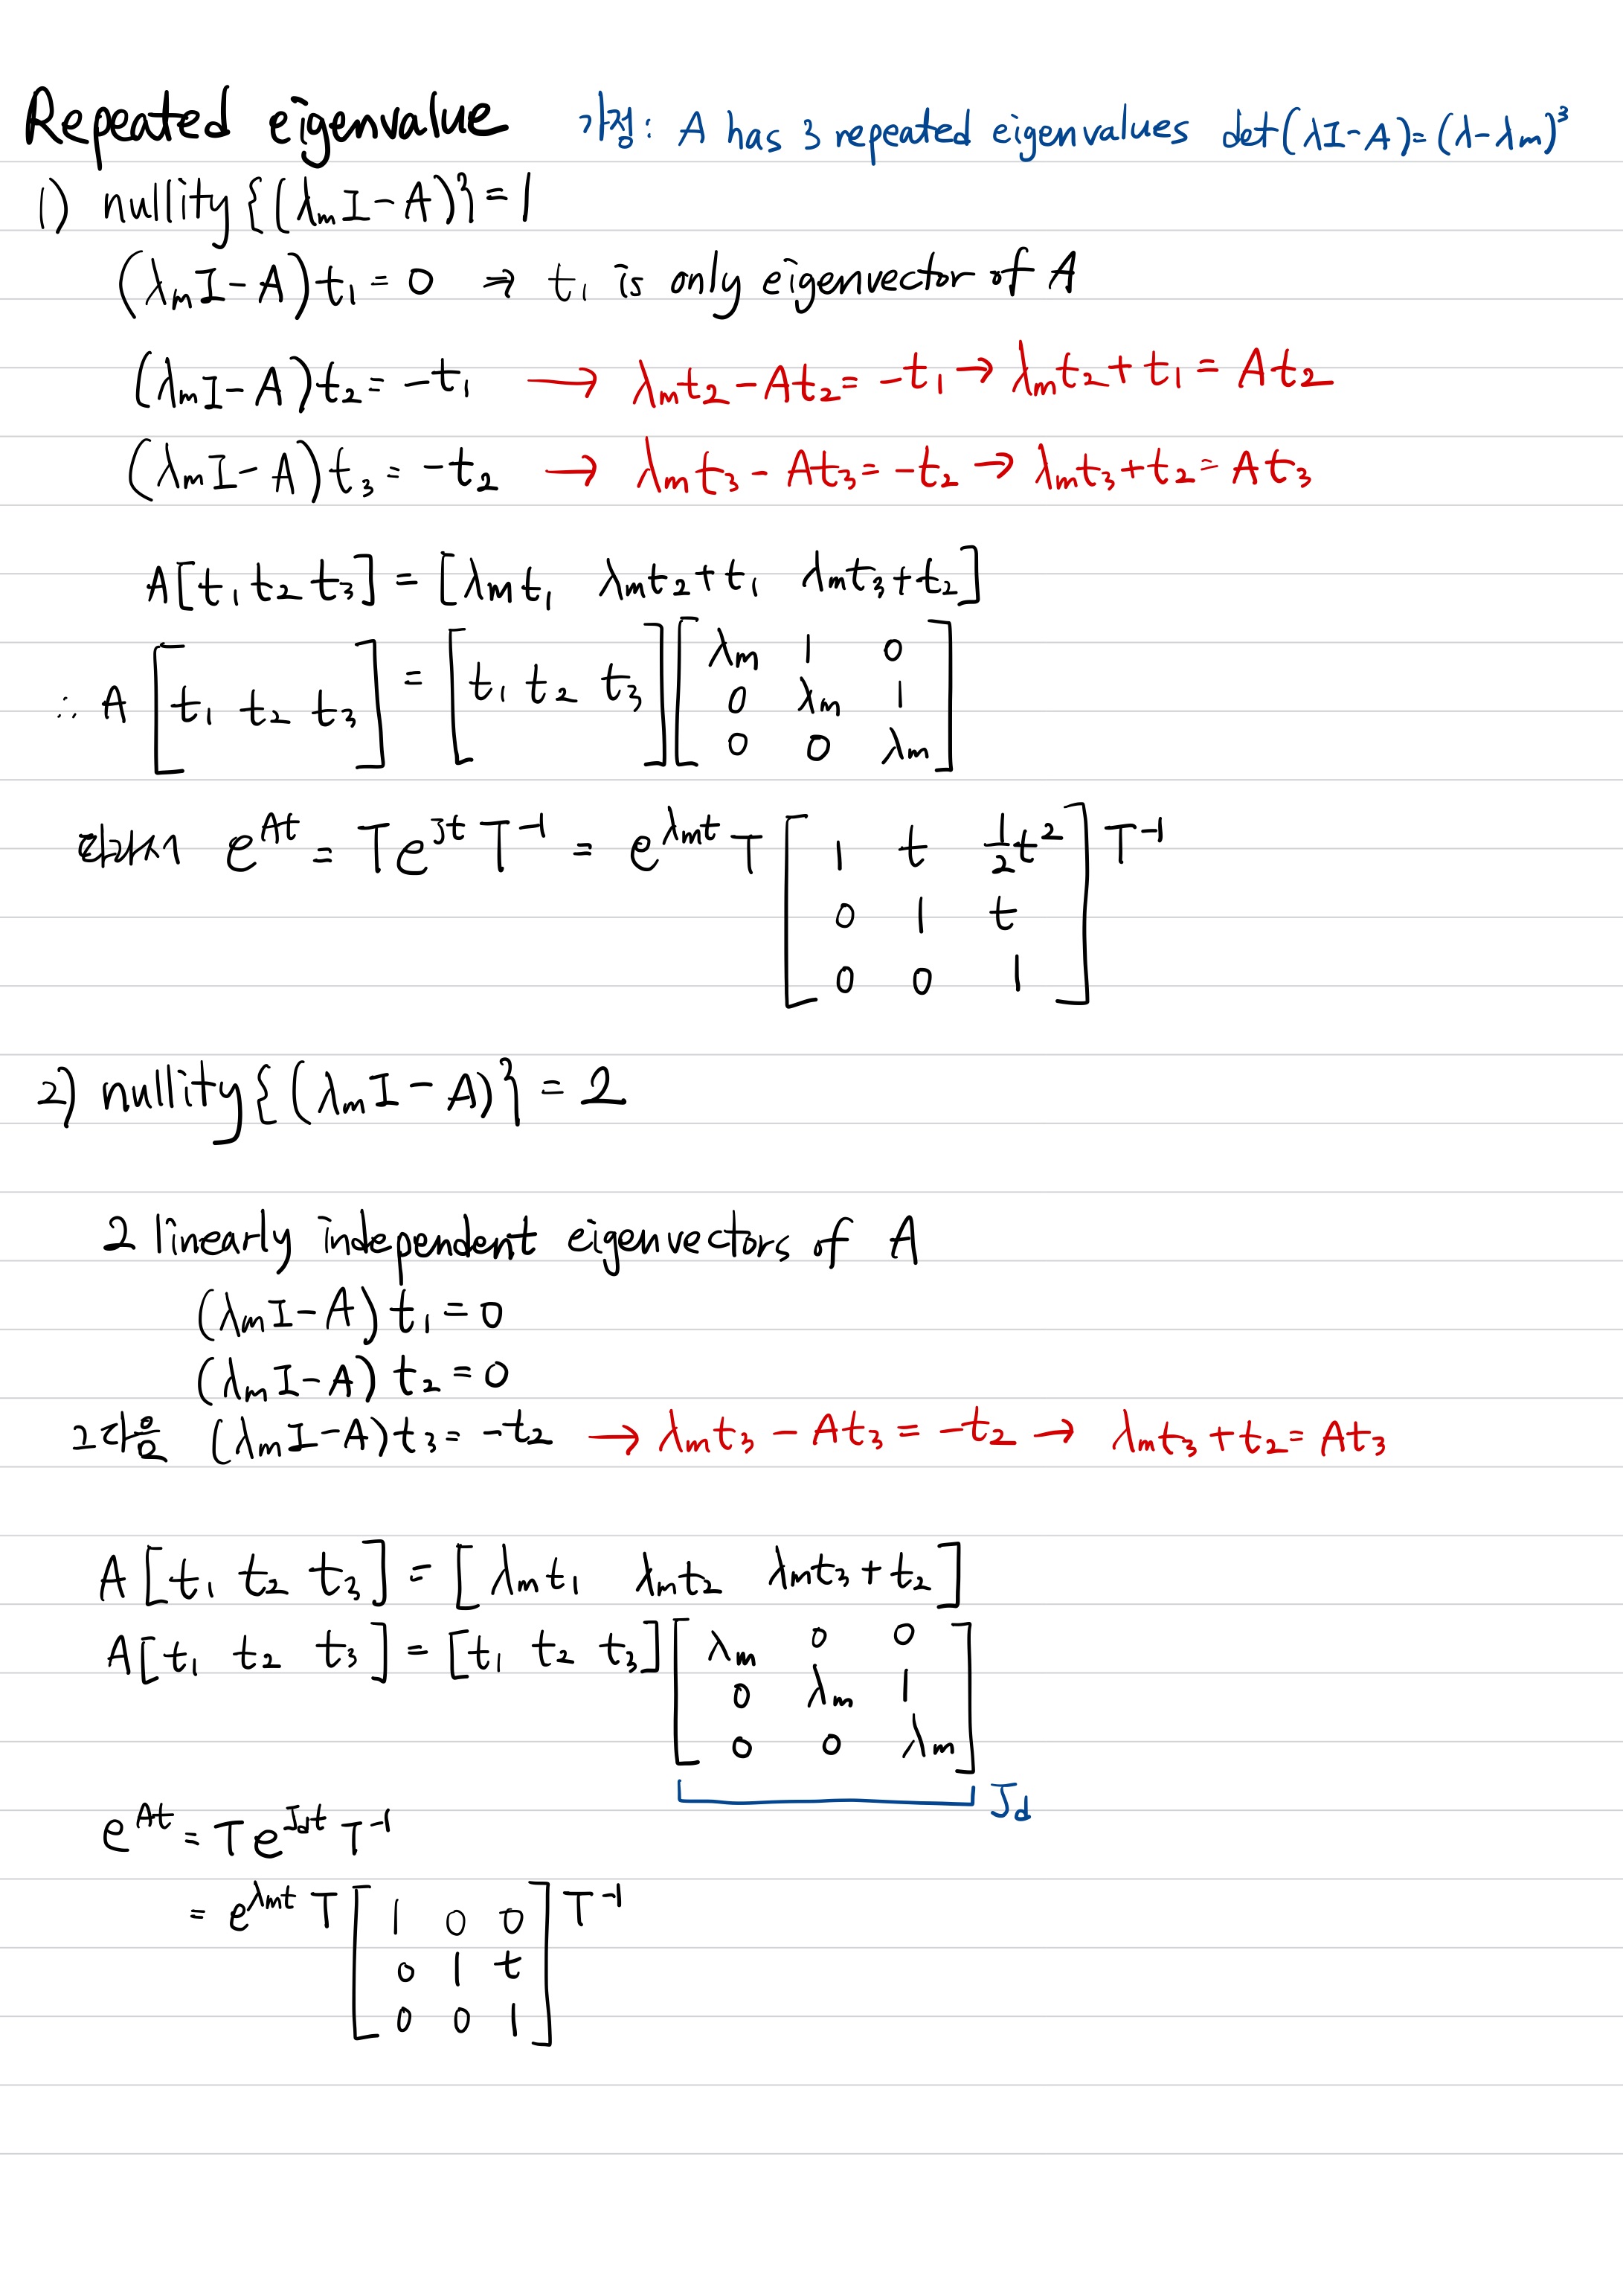 Repeated eigenvalue 가정: A has 3 repeated eigenvalues det(λI-A)=(λ-λm)³
1) nullity{(λmI-A)}=1
(λmI-A)t₁=0 ⇒ t₁ is only eigenvector of A
(λmI-A)t₂=-t₁ → λmt₂-At₂=-t₁ → λmt₂+t₁=At₂
(λmI-A)t₃=-t₂ → λmt₃-At₃=-t₂ → λmt₃+t₂=At₃
A[t₁ t₂ t₃] = [λmt₁ λmt₂+t₁ λmt₃+t₂]
∴ A[t₁ t₂ t₃] = [t₁ t₂ t₃][λm 1 0
0 λm 1
0 0 λm]
따라서 e^At = Te^Jt T⁻¹ = e^λmt T[1 t ½t²
0 1 t
0 0 1]T⁻¹
2) nullity{(λmI-A)}=2
2 linearly independent eigenvectors of A
(λmI-A)t₁=0
(λmI-A)t₂=0
그 다음 (λmI-A)t₃=-t₂ → λmt₃-At₃=-t₂ → λmt₃+t₂=At₃
A[t₁ t₂ t₃] = [λmt₁ λmt₂ λmt₃+t₂]
A[t₁ t₂ t₃] = [t₁ t₂ t₃][λm 0 0
0 λm 1
0 0 λm]
Jd
e^At = Te^Jdt T⁻¹
= e^λmt T[1 0 0
0 1 t
0 0 1]T⁻¹